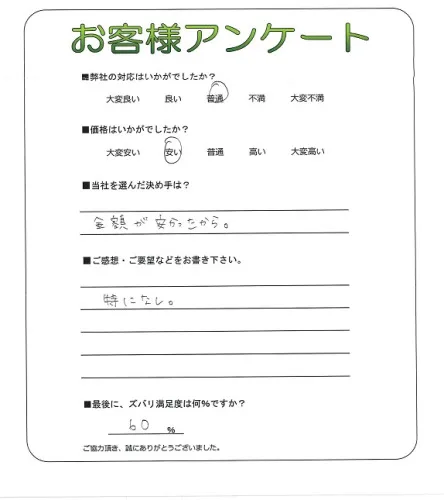 お客様アンケート
■弊社の対応はいかがでしたか？
大変良い 良い 普通 不満 大変不満
■価格はいかがでしたか？
大変安い 安い 普通 高い 大変高い
■当社を選んだ決め手は？
金額が安かったから。
■ご感想・ご要望などをお書き下さい。
特になし。
■最後に、ズバリ満足度は何％ですか？
60 ％
ご協力頂き、誠にありがとうございました。